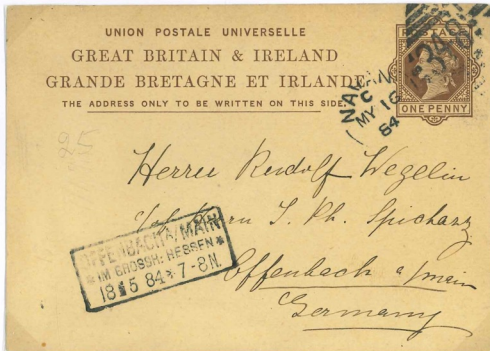 UNION POSTALE UNIVERSELLE
GREAT BRITAIN & IRELAND
GRANDE BRETAGNE ET IRLANDE
THE ADDRESS ONLY TO BE WRITTEN ON THIS SIDE.
POSTAGE
ONE PENNY
C
MY 16
84
25
Herrn Rudolf Wegelin
Herrn J. Ph. Spicharz
Offenbach a/main
Germany
OFFENBACH A/MAIN
* IM GROSSH: HESSEN *
18 5 84 * 7-8N.